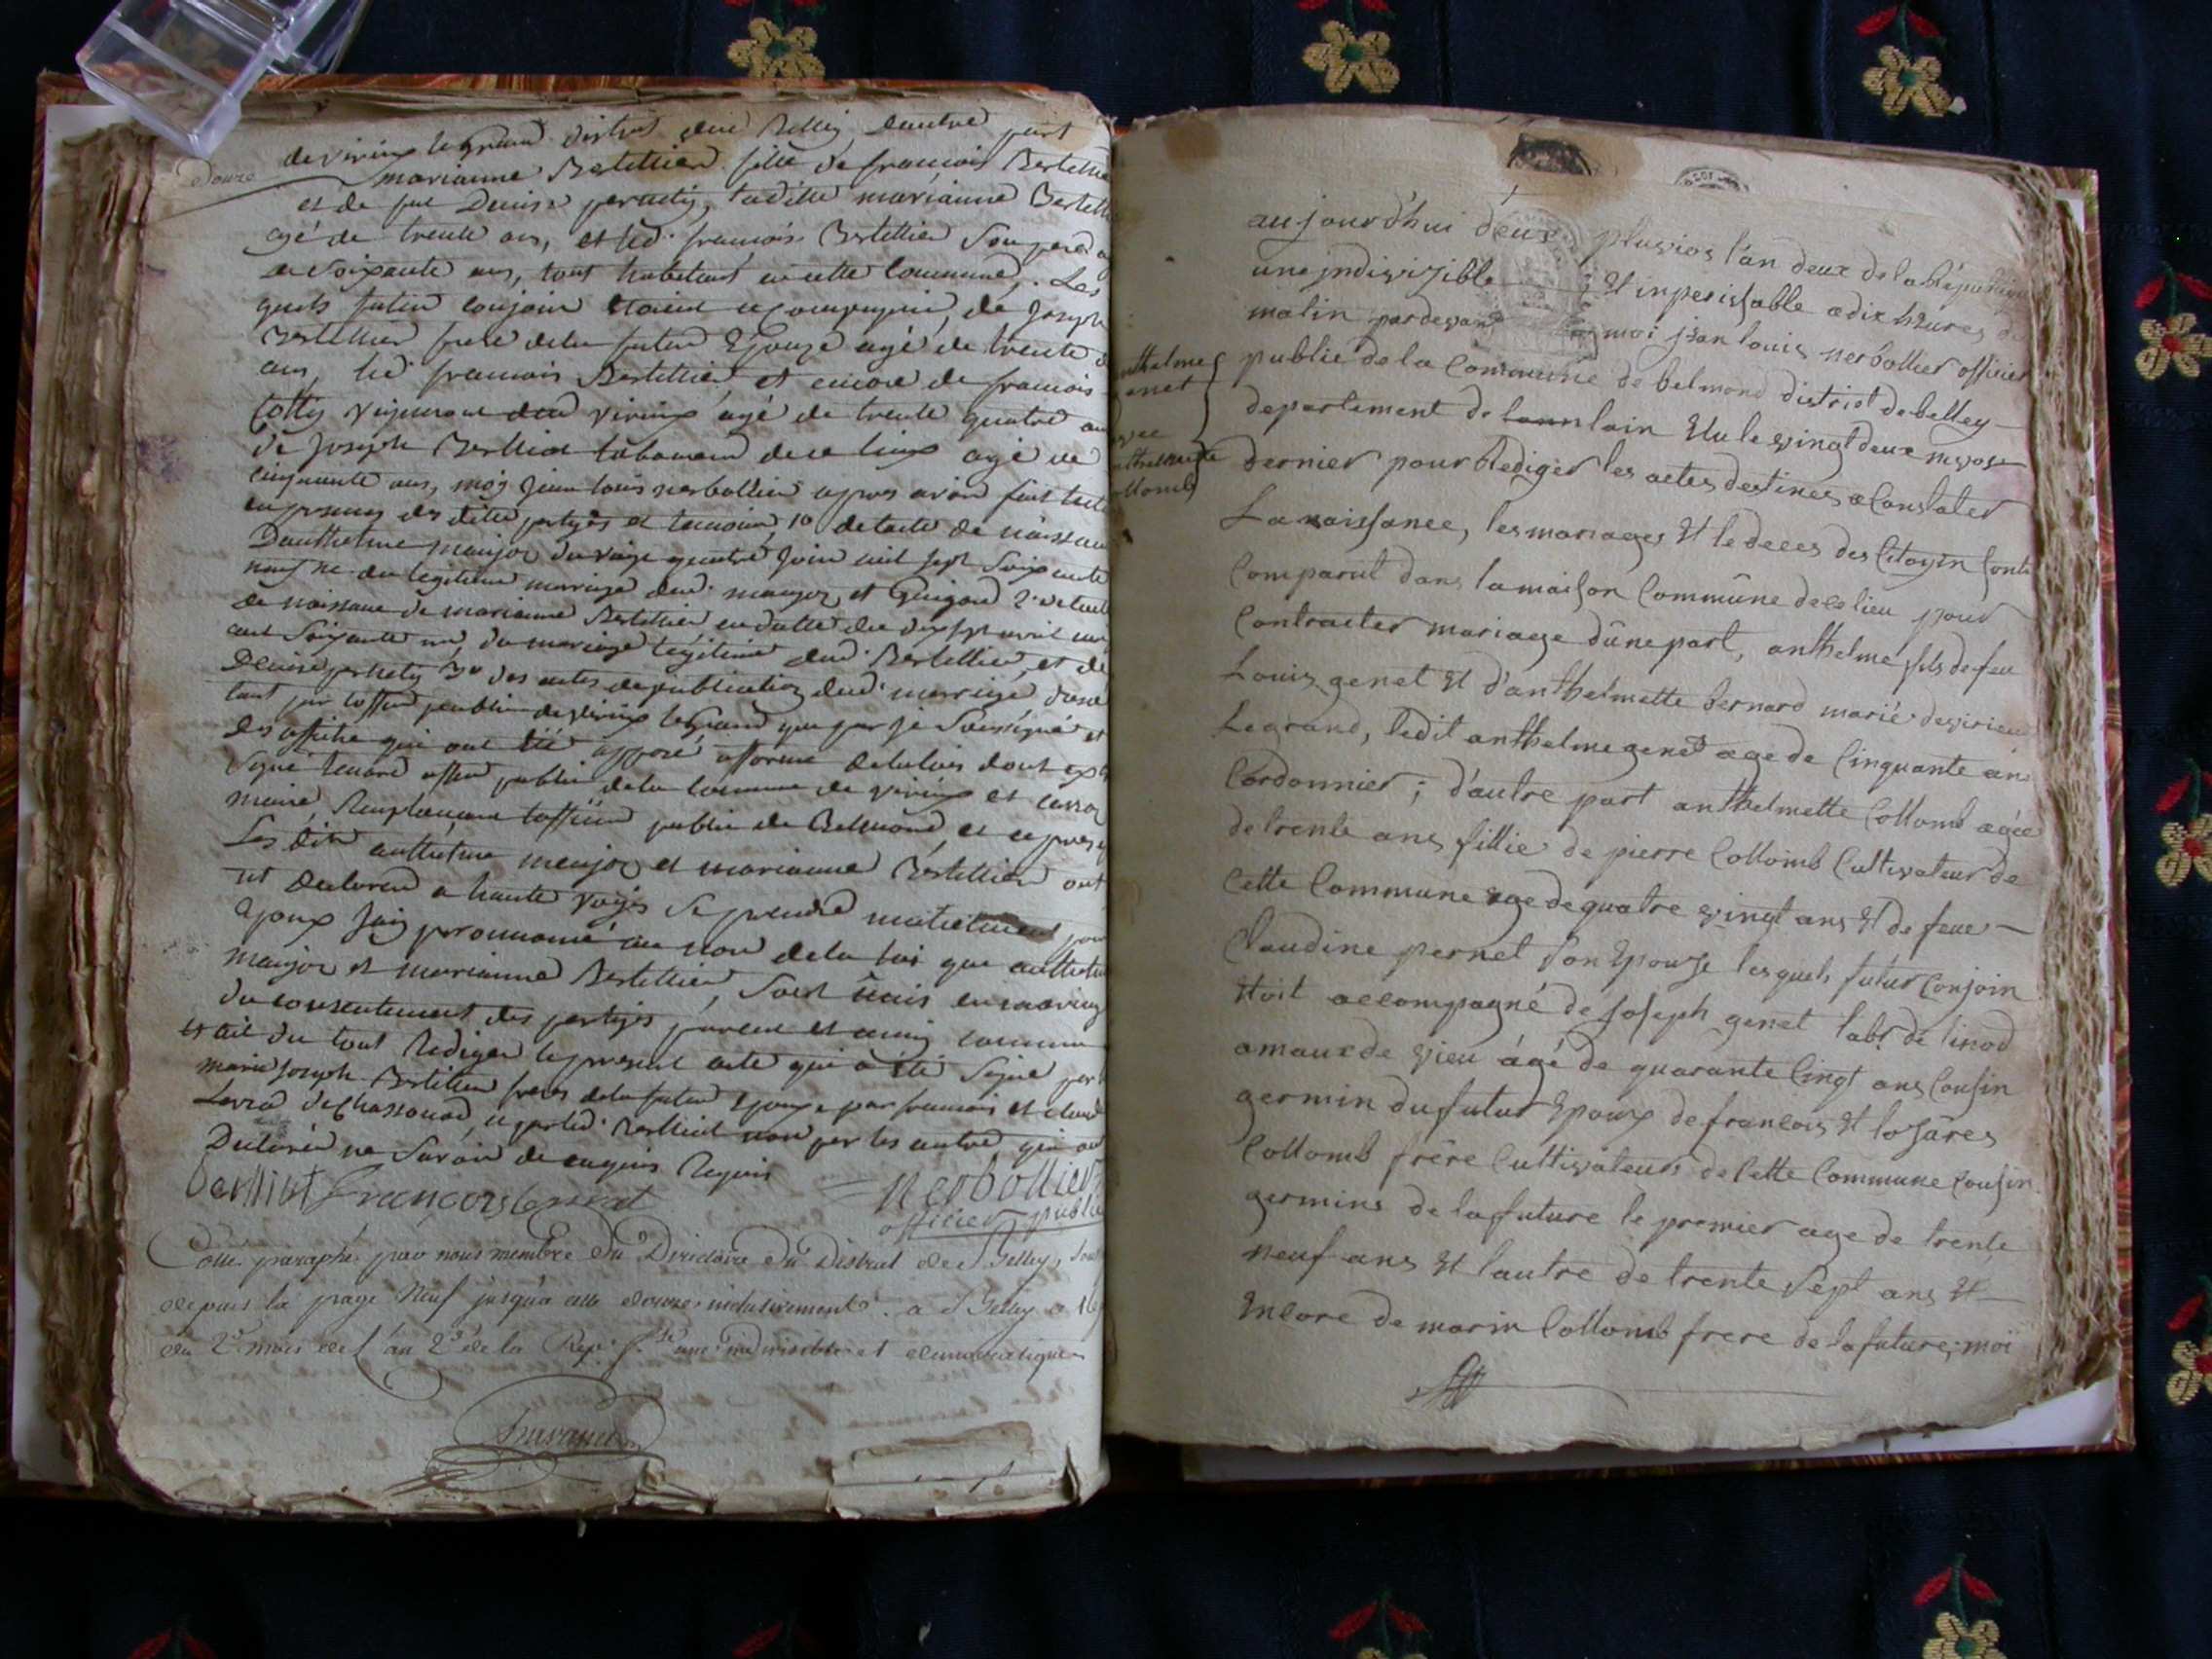 douze
de virieux le grand district dud Belley d'autre part
marianne Bertellier fille de francois Bertellie
et de fue Denise pernety, ladille marianne Bertelli
agé de trente ans, et led. francois Bertellier Son pere a
de Soixante ans, tout habitant en cette Commune. Les
quels futur conjoin etoient accompagnié de Joseph
Bertellier frere dela futur Epouze agé de trente
ans, led francois Bertellier et encore de francois
Cottin vigneron dud virieux agé de trente quatre an
de Joseph Berlliat laboureur de ce lieux agé de
cinquante ans, moy Jean louis nerbollier apres avoir fait lect
en presence des dittes partyes et temoins, 1o de lacte de naissan
Danthelme manjoz du vingt quatre Juin mil sept Soixante
neuf né du legitime marriage dud. manjoz et
de naissance de marianne Bertellier en datte du dix sept avril
cent Soixante un, du mariage legitime dud. Bertellier, et de
Denise pernety 3o des actes de publication dud. marriage
tant par loffier publie de virieux legrand que par je Soussigné et
des affiche qui ont été apposé afforme delaloix dont
Signé officier public dela commune de virieux et
maire Remplacant loffiier publie de Belmond, et
Les dits anthelme manjoz et marianne Bertellier ont
declaren a haute voyis Se prendre mutuelment pour
Epoux Jaij prononcé au nom dela loi que anthelm
manjoz et marianne Bertellier, Sont unis en mariag
du consentement des partyes parent et amis
et ait du tout Rediger le present acte qui a été Signé par
marie Joseph Bertellier freres dela futur Epouze par francois et
de Chassonod, et par led. Berlliat non par les autre qui ont
Declaré ne Savoir de enquis Requis
berlliat francois nerbollier
officier public
Cotté paraphé par nous membre du Directoire du District de Belley, Sous
depuis la page Neuf jusqu'a celle douze inclusivement. a Belley a 16
du 2e mois de l'an 2e de la Rep. f. une indivisible et democratique
aujourd'hui deux pluvios l'an deux de la Républiqu
une jndivizible Et inperissable a dix hEures du
matin pardevant moi jean louis nerbollier officier
anthelme
genet
avec
anthelmette
Collomb
publie de la Commune de belmond district de belley
departement de lain Elu le vingt deux nivose
dernier pour Rediger les actes destines a Constater
La naissance, les mariages Et le deces des Citoyin Sont
Comparut dans la maison Commune de ce lieu pour
Contracter mariage d'une part, anthelme fils de feu
Louis genet Et d'anthelmette bernard marié de virieu
Legrand, ledit anthelme genet age de Cinquante ans
Cordonnier ; d'autre part anthelmette Collomb agée
de trente ans fillie de pierre Collomb Cultivateur de
Cette Commune age de quatre vingt ans Et de feue
Claudine pernet Son Epouse lesquels futur Conjoin
Etoit accompagné de Joseph genet labr de linod
amaux de vieu âgé de quarante Cinqt ans Cousin
germin du futur Epoux de francois Et losares
Collomb frère Cultivateurs de Cette Commune Cousin
germins de la future le premier age de trente
neuf ans Et l'autre de trente Sept ans Et
Encore de marin Collomb frere de la future, moi